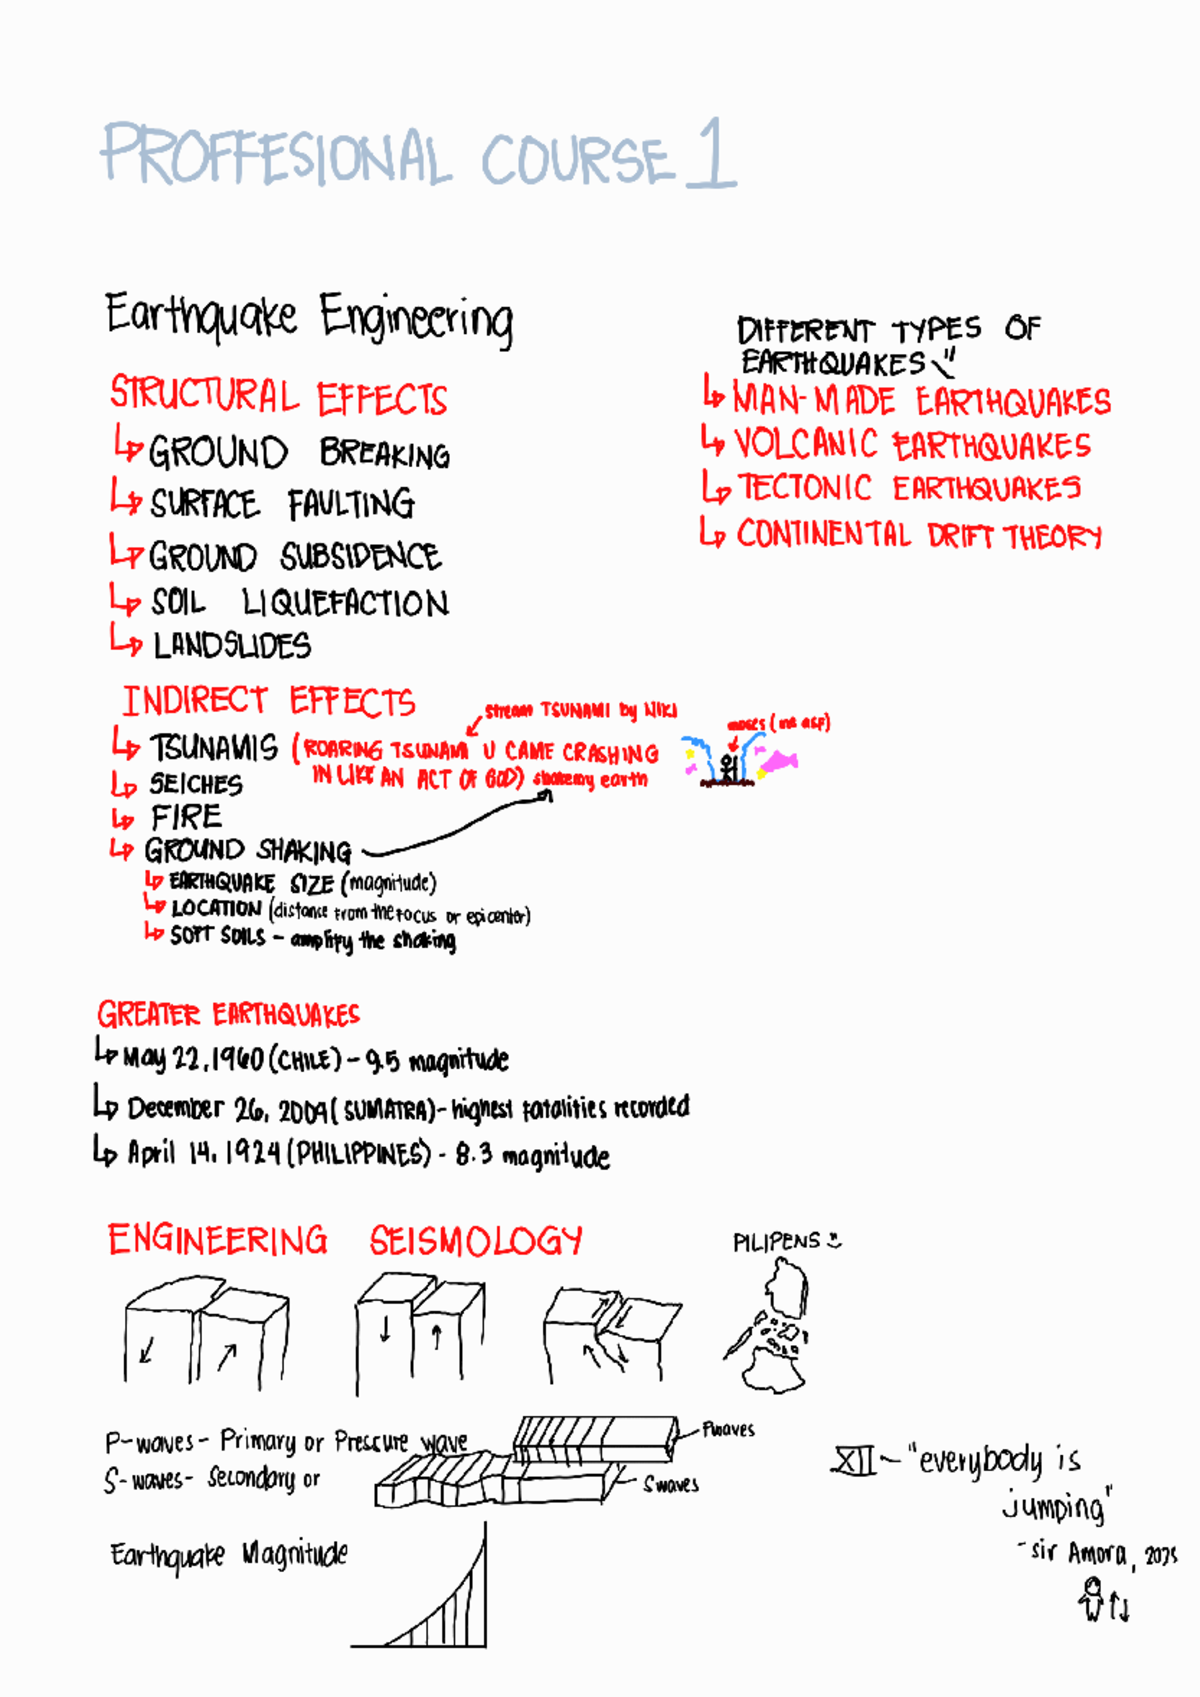 PROFFESIONAL COURSE 1
Earthquake Engineering
STRUCTURAL EFFECTS
GROUND BREAKING
SURFACE FAULTING
GROUND SUBSIDENCE
SOIL LIQUEFACTION
LANDSLIDES
DIFFERENT TYPES OF
EARTHQUAKES
MAN-MADE EARTHQUAKES
VOLCANIC EARTHQUAKES
TECTONIC EARTHQUAKES
CONTINENTAL DRIFT THEORY
INDIRECT EFFECTS
stream TSUNAMI by NIKI
moses (me asf)
TSUNAMIS (ROARING TSUNAMI U CAME CRASHING
IN LIKE AN ACT OF GOD) shake my earth
SEICHES
FIRE
GROUND SHAKING
EARTHQUAKE SIZE (magnitude)
LOCATION (distance from the focus or epicenter)
SOFT SOILS - amplify the shaking
GREATER EARTHQUAKES
May 22, 1960 (CHILE) - 9.5 magnitude
December 26, 2004 (SUMATRA) - highest fatalities recorded
April 14, 1924 (PHILIPPINES) - 8.3 magnitude
ENGINEERING SEISMOLOGY
PILIPENS
P-waves - Primary or Pressure wave
Pwaves
S-waves - Secondary or
Swaves
XII - "everybody is
jumping"
- sir Amora, 2025
Earthquake Magnitude